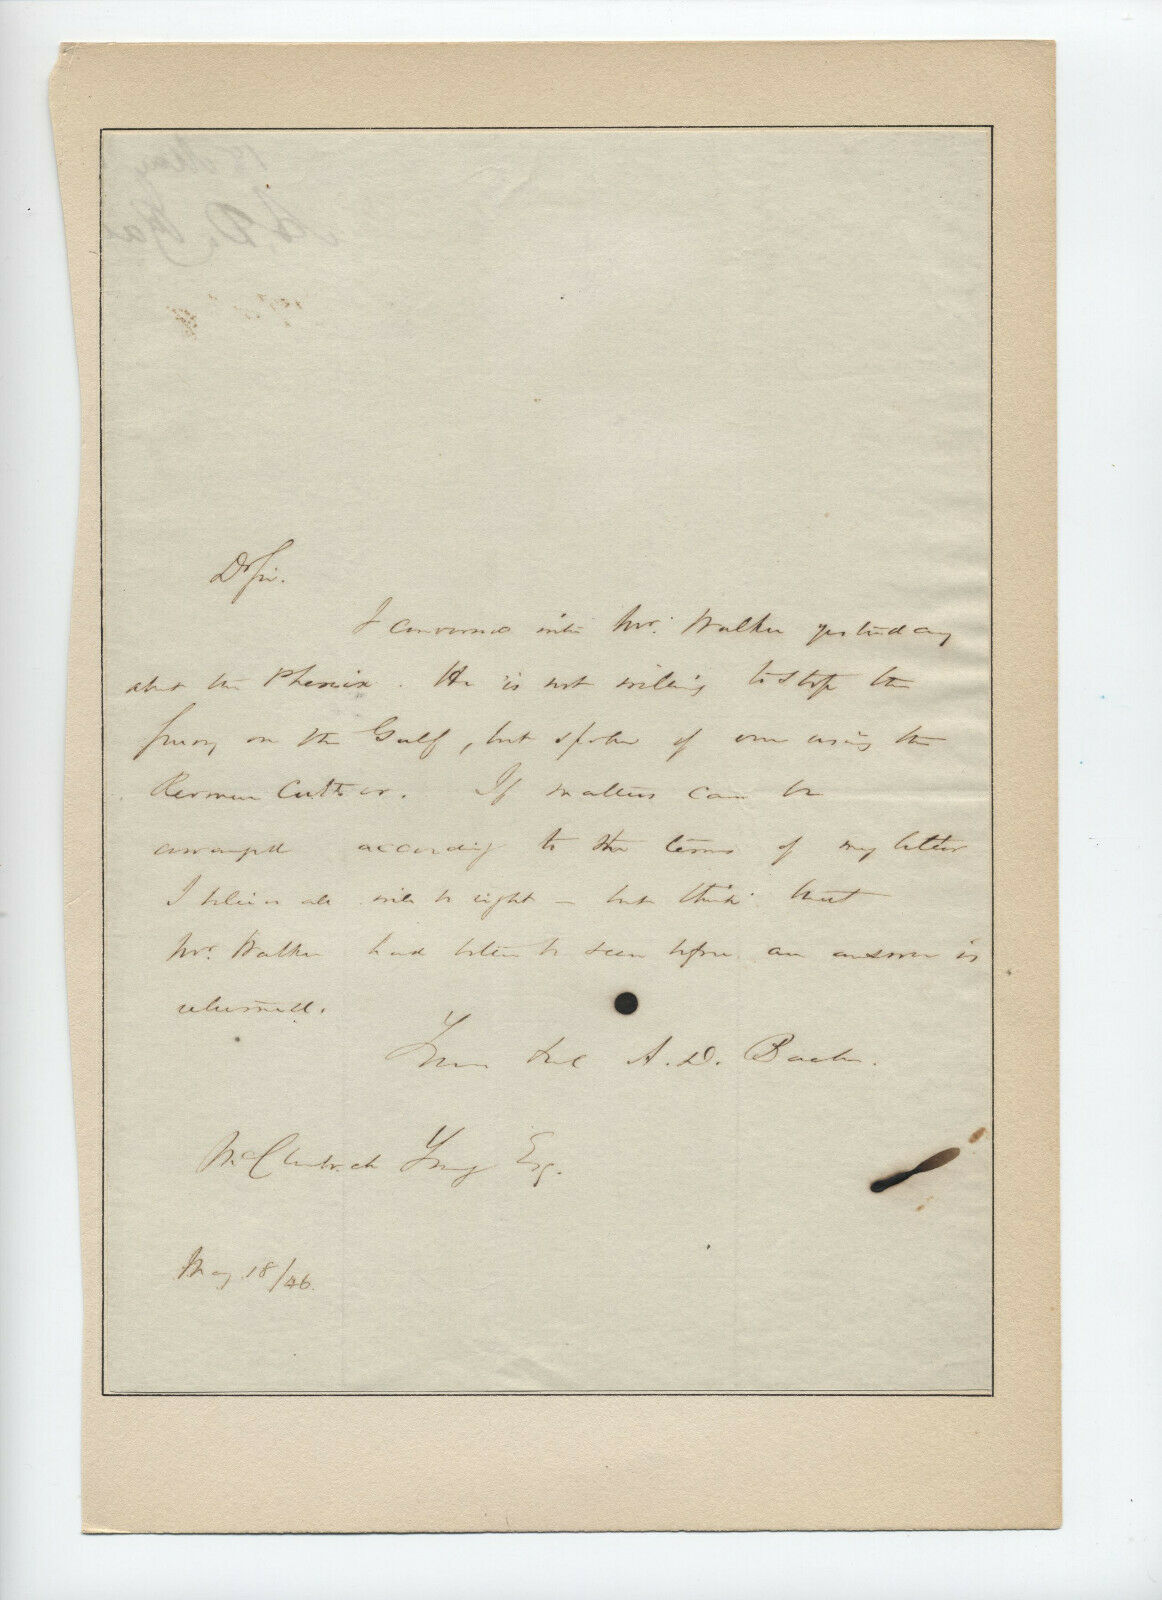 Dr Sir.
I conversed with Mr. Walker yesterday
about the Phenix. He is not willing to stop the
on the Gulf, but spoke of our using the
Revenue Cutter. If matters can be
arranged according to the terms of my letter
I believe all will be right – but think that
Mr. Walker had better be seen before an answer is
returned.
Yours truly A. D. Bache.
McClintock Young Esq.
May 18/46.